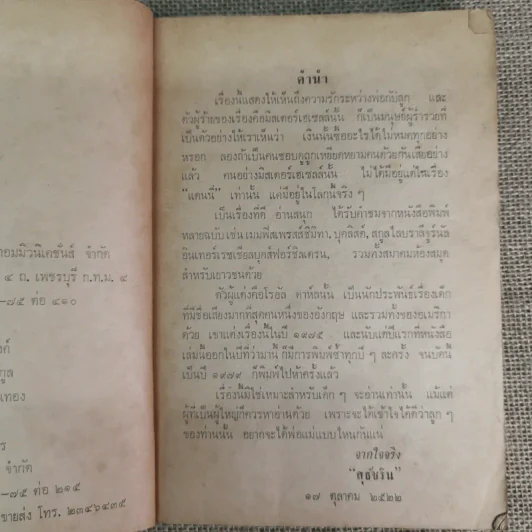 อมมิวนิเคชั่นส์ จำกัด
๔ ถ. เพชรบุรี ก.ท.ม. ๔
-๗๕ ต่อ ๔๑๐
งค์
กูล
ทอง
ร
จำกัด
-๗๕ ต่อ ๒๑๕
ขายส่ง โทร. ๒๓๔๖๔๓๕
คำนำ
เรื่องนี้แสดงให้เห็นถึงความรักระหว่างพ่อกับลูก และ
ตัวผู้ร้ายของเรื่องคือมิสเตอร์เฮเซลล์นั้น ก็เป็นมนุษย์ผู้ร่ำรวยที่
เป็นตัวอย่างให้เราเห็นว่า เงินนั้นซื้ออะไรได้ไม่หมดทุกอย่าง
หรอก ลองถ้าเป็นคนชอบดูถูกเหยียดหยามคนด้วยกันเสียอย่าง
แล้ว คนอย่างมิสเตอร์เฮเซลล์นั้น ไม่ได้มีอยู่แต่ในเรื่อง
"แดนนี่" เท่านั้น แต่มีอยู่ในโลกนี้จริง ๆ
เป็นเรื่องที่ดี อ่านสนุก ได้รับคำชมจากหนังสือพิมพ์
หลายฉบับ เช่น บุคลิสต์, สกูลไลบรารี่จูร์นัล
อินเตอร์เรซเชียลบุคส์ฟอร์ชิลเดรน, รวมทั้งสมาคมห้องสมุด
สำหรับเยาวชนด้วย
ตัวผู้แต่งคือโรอัล ดาห์ลนั้น เป็นนักประพันธ์เรื่องเด็ก
ที่มีชื่อเสียงมากที่สุดคนหนึ่งของอังกฤษ และรวมทั้งของอเมริกา
ด้วย เขาแต่งเรื่องนี้ในปี ๑๙๗๕ และนับแต่ปีแรกที่หนังสือ
เล่มนี้ออกในปีที่ว่ามานี้ ก็มีการพิมพ์ซ้ำทุกปี ๆ ละครั้ง จนบัดนี้
เป็นปี ๑๙๗๙ ก็พิมพ์ไปห้าครั้งแล้ว
เรื่องนี้มิใช่เหมาะสำหรับเด็ก ๆ จะอ่านเท่านั้น แม้แต่
ผู้ที่เป็นผู้ใหญ่ก็ควรหาอ่านด้วย เพราะจะได้เข้าใจได้ดีว่าลูก ๆ
ของท่านนั้น อยากจะได้พ่อแม่แบบไหนกันแน่
จากใจจริง
"สุธัชริน"
๑๗ ตุลาคม ๒๕๒๒